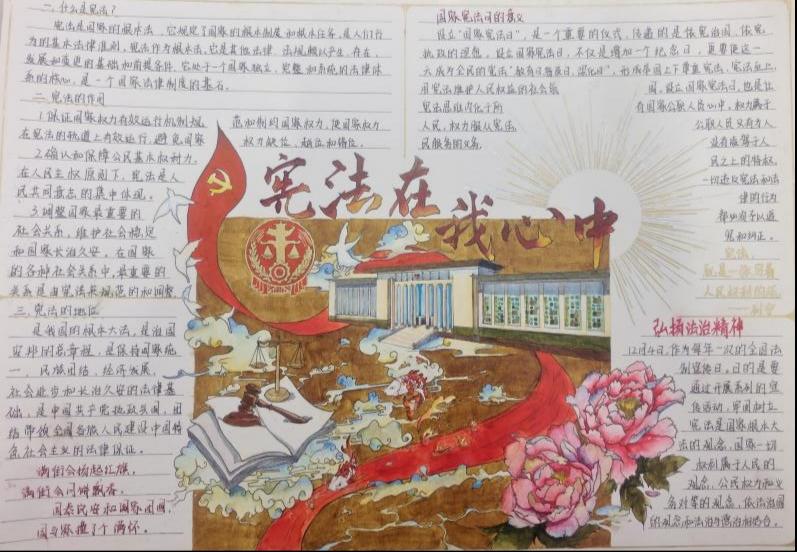 一.什么是宪法?
宪法是国家的根本法,它规定了国家的根本制度和根本任务,是人们行
为的基本法律准则,宪法作为根本法,它是其他法律、法规赖以产生、存在、
发展和变更的基础和前提条件,它处于一个国家独立、完整和系统的法律体
系的核心,是一个国家法律制度的基石。
二.宪法的作用
1.保证国家权力有效运行机制规
范和制约国家权力,使国家权力
在宪法的轨道上有效运行,避免国家
权力缺位、越位和错位。
2.确认和保障公民基本权利力,
在人民主权原则下,宪法是人
民共同意志的集中体现。
3.调整国家最重要的
社会关系,维护社会稳定
和国家长治久安,在国家
的各种社会关系中,最重要的
关系是由宪法来规范的和调整
三.宪法的地位
是我国的根本大法,是治国
安邦的总章程,是保持国家统
一、民族团结、经济发展、
社会进步和长治久安的法律基
础,是中国共产党执政兴国,团
结带领全国各族人民建设中国特
色社会主义的法律保证。
满街会扬起红旗,
满街会同饼飘香,
国泰民安和满家团圆,
国与家撞了个满怀。
宪法在
我心中
国家宪法日的意义
设立“国家宪法日”,是一个重要的仪式,传递的是依宪治国、依宪
执政的理念。设立国家宪法日,不仅是增加一个纪念日,更要使这一
天成为全民的宪法“教育日、普及日、深化日”,形成举国上下尊重宪法、宪法至上、
用宪法维护人民权益的社会氛
围,设立国家宪法日,也是让
宪法思维内化于所
有国家公职人员心中,权力属于
人民,权力服从宪法,
公职人员只有为人
民服务的义务,
没有凌驾于人
民之上的特权,
一切违反宪法和法
律的行为
都必须予以追
究和纠正。
宪法
就是一张写着
人民权利的纸
——列宁
弘扬法治精神
12月4日,作为每年一次的全国法
制宣传日,目的是要
通过开展系列的宣
传活动,牢固树立
宪法是国家根本大
法的观念,国家一切
权利属于人民的
观念,公民权力和义
务对等的观念,依法治国
的观念和法治与德治相结合。